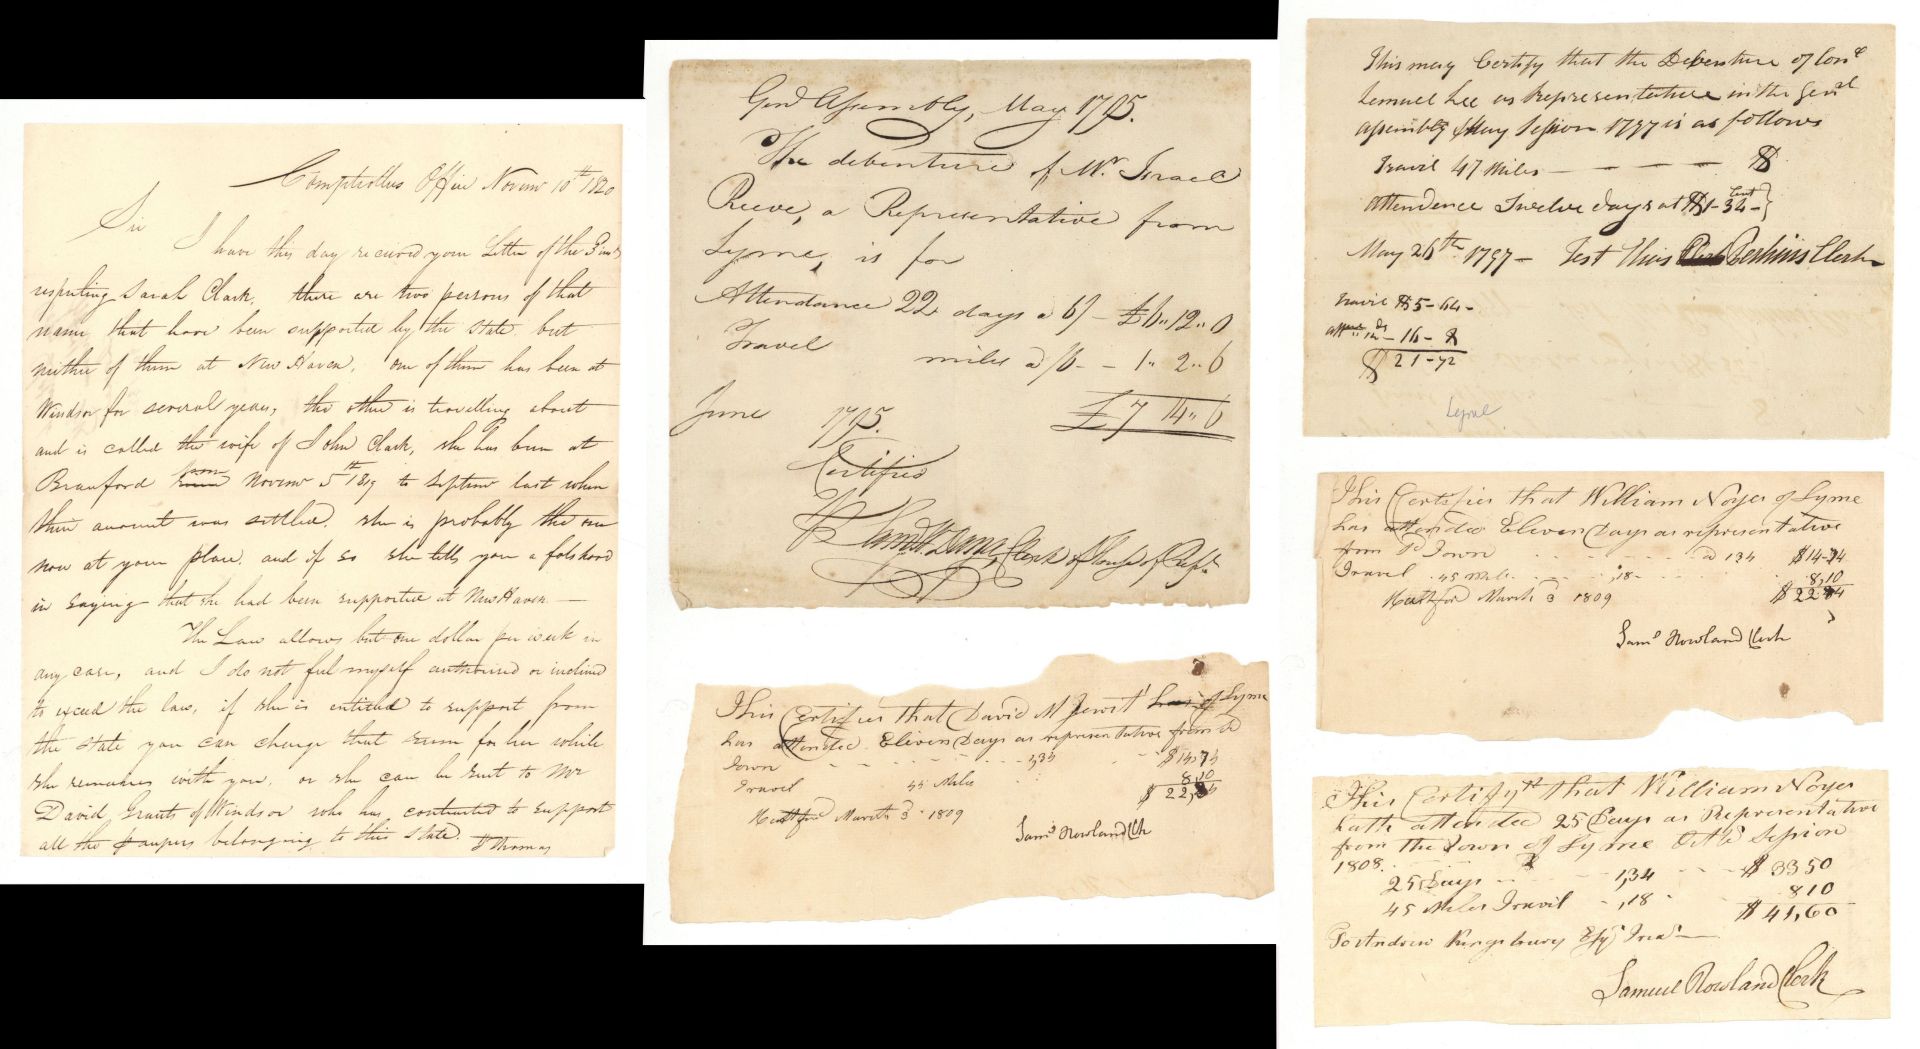 Comptrollers Office Novemr 10th 1820
Sir
I have this day received your Letter of the
respecting Sarah Clark, there are two persons of that
name that have been supported by the State but
neither of them at New Haven, one of them has been at
Windsor for several years, the other is travelling about
and is called the wife of John Clark, she has been at
Branford from Novemr 5th 1819 to Septemr last when
their amount was settled. she is probably the one
now at your place. and if so she tells you a falshood
in saying that she had been supported at New Haven. —
The Law allows but one dollar per week in
any case, and I do not feel myself authorised or inclined
to exceed the law, if she is entitled to support from
the State you can charge that sum for her while
she remains with you, or she can be sent to Mr
David Grants of Windsor who has contracted to support
all the paupers belonging to this State. Thomas
Genl Assembly, May 1795.
The debenture of Mr. Israel
Reeve, a Representative from
Lyme, is for
Attendance 22 days a 6/ — £6.. 12.. 0
Travel miles a /6 - - 1.. 2.. 6
June 1795. £7 14.. 6
Certified
Clerk of House of Repts
This Certifies that David M Jewit of Lyme
has attended Eleven Days as representative from Sd
Town - - - - - - 1,34 - - $14,74
Travel 45 Miles 8,10
$ 22,84
Hartford March 3d 1809
Saml Rowland Clk
This may Certify that the Debenture of Conl
Lemuel Lee as Representative in the Genrl
Assembly May Session 1797 is as follows
Travil 47 Miles — — — — $
Attendence Twelve days at $1-34 Cent -}
May 26th 1797 - Test Thos Perkins Clerk
Travil $5-64-
12 Ds - 16-8
$ 21-72
Lyme
This Certifies that William Noyes of Lyme
has attended Eleven Days as representative
from Sd Town a 134 $14-74
Travel 45 Miles ,18 - 8,10
Hartford March 3d 1809 $22-84
Saml Rowland Clerk
This Certifyth that William Noyes
hath attended 25 Days as Representative
from the Town of Lyme Octbr Session
1808.
25 Days - - - - 1,34 - - - $ 33 50
45 Miles Travil - ,18 - 8 10
$ 41,60
To Andrew Kingsbury Esqr Trear
Samuel Rowland Clerk